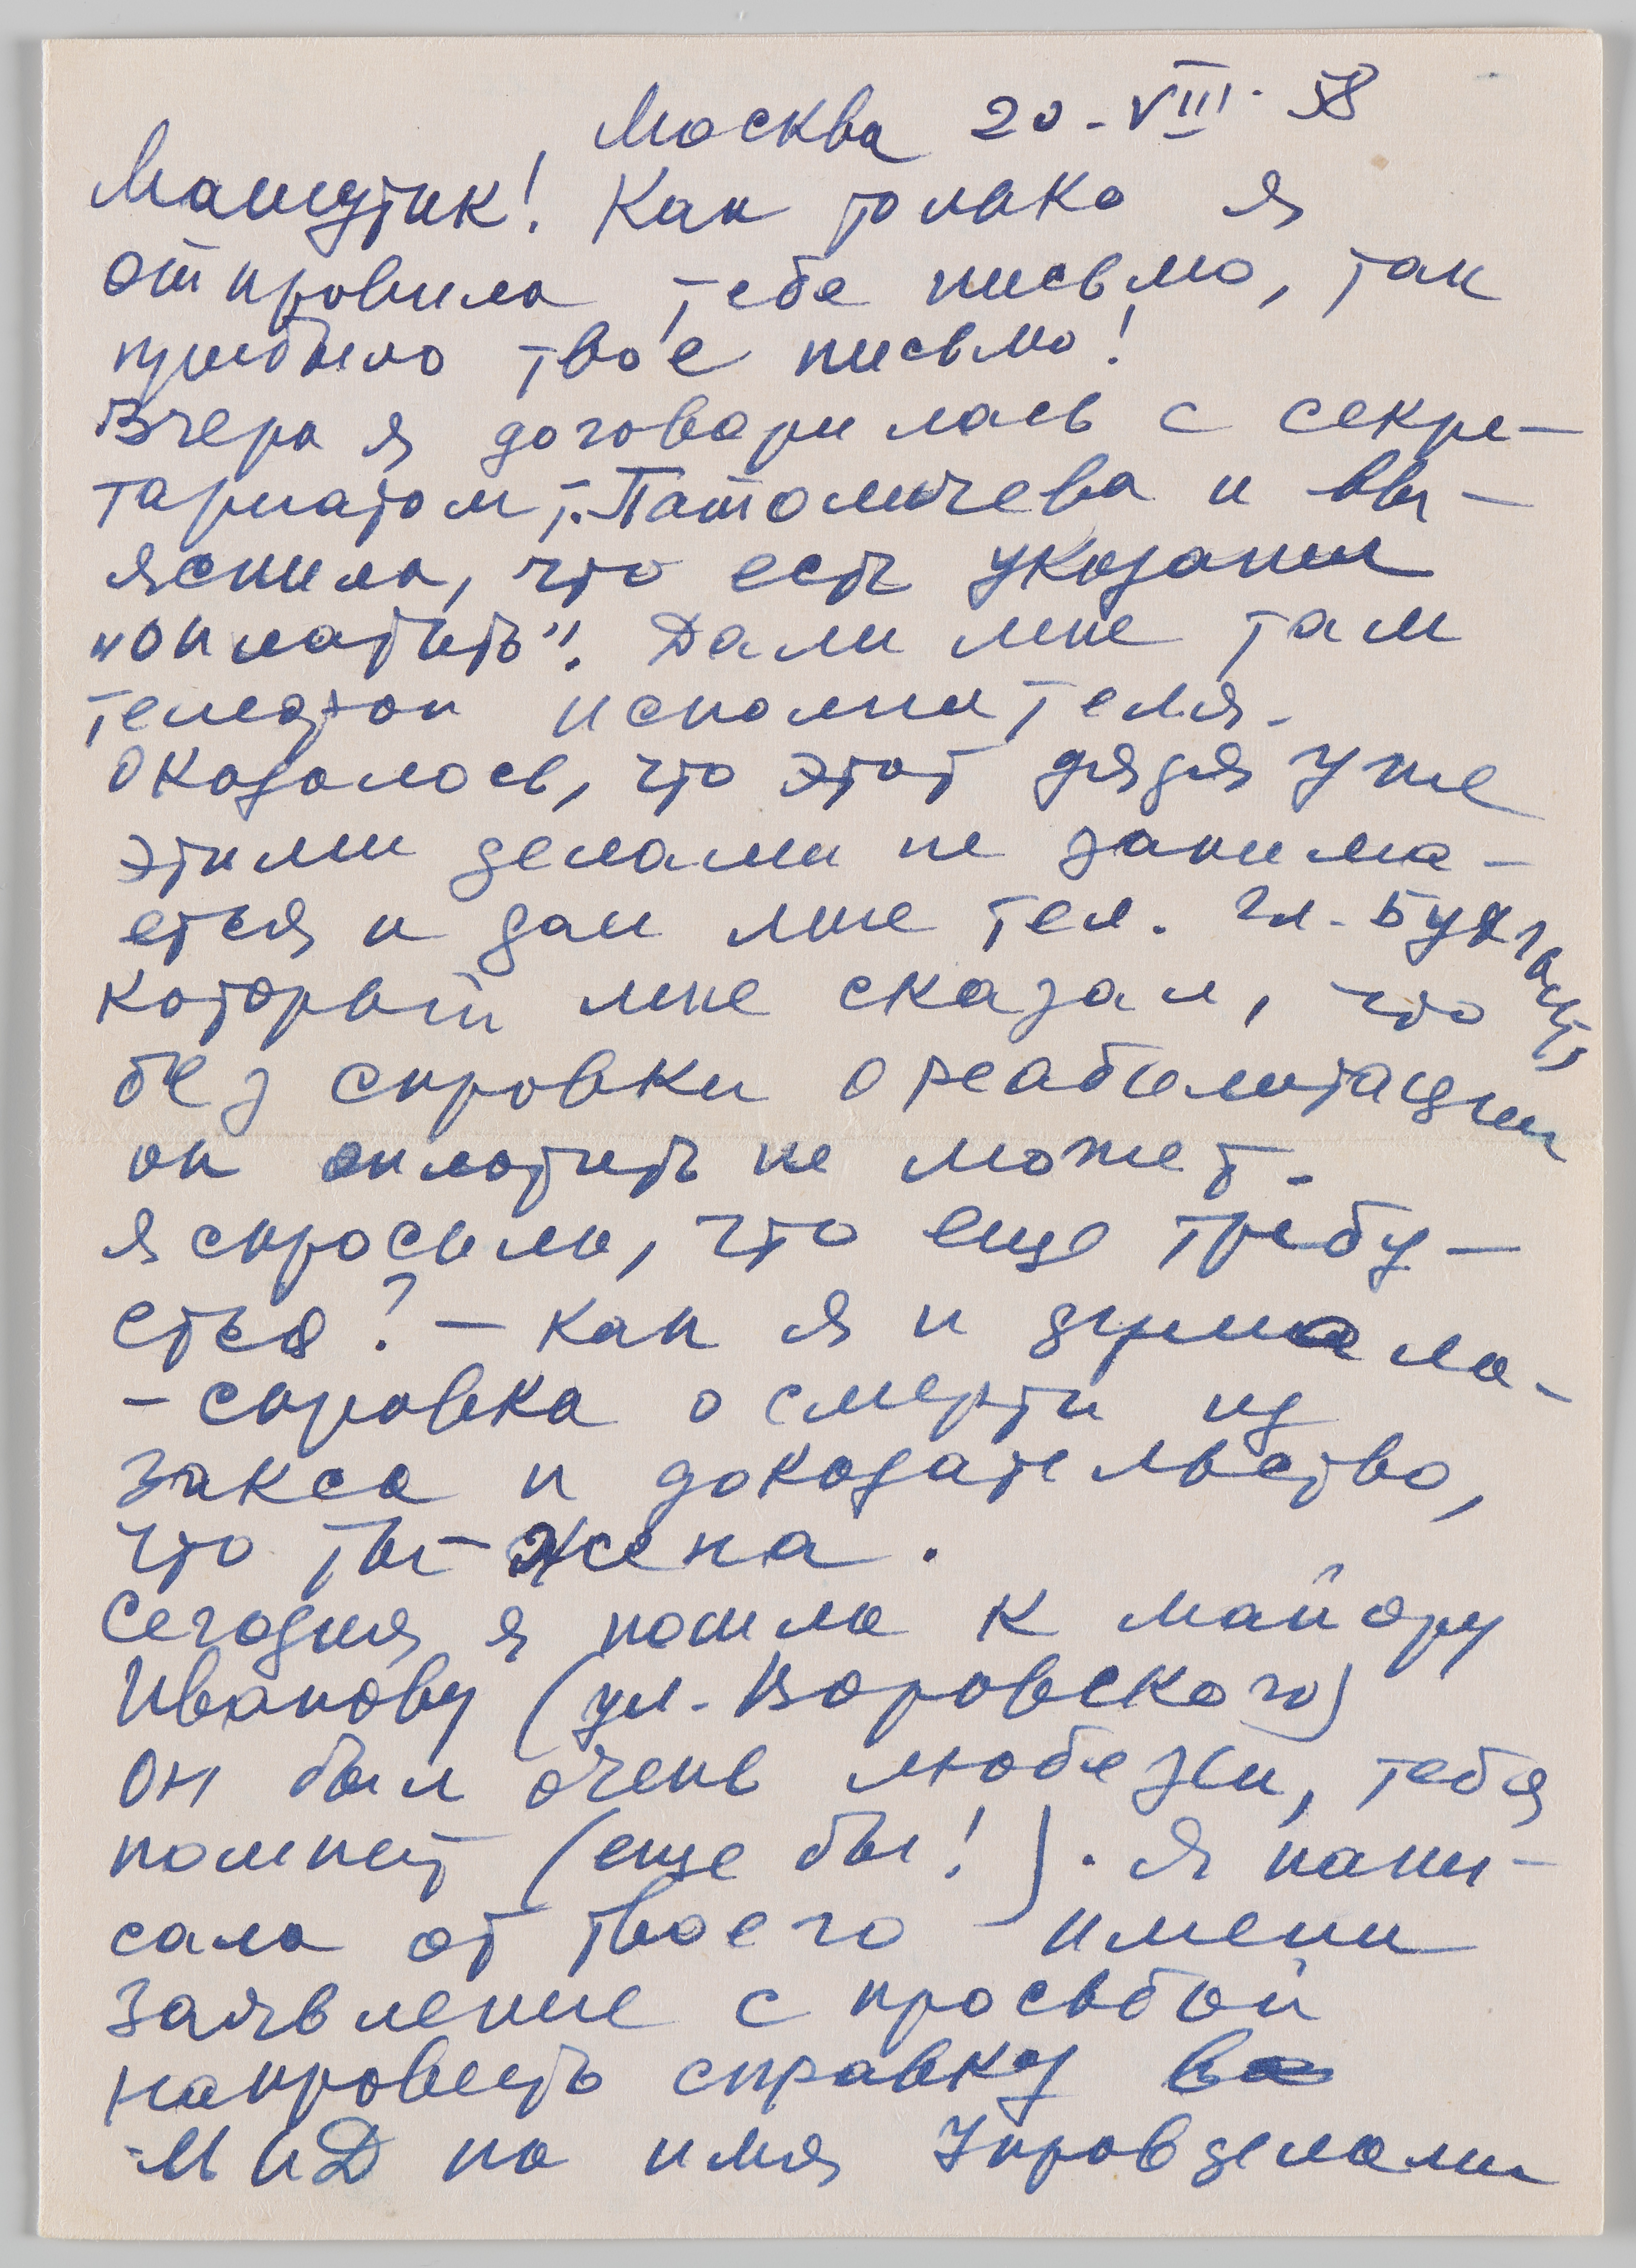 Москва 20-VIII-58
Машутик! Как только я
отправила тебе письмо, так
прибыло твое письмо!
Вчера я договорилась с секре-
тариатом т. Патоличева и вы-
яснила, что есть указание
"оплатить". Дали мне там
телефон исполнителя.
Оказалось, что этот дядя уже
этими делами не занима-
ется и дал мне тел. гл. бухгалтера,
который мне сказал, что
без справки о реабилитации
он оплатить не может.
Я спросила, что еще требу-
ется? - Как я и думала -
- справка о смерти из
Загса и доказательство,
что ты - жена.
Сегодня я пошла к майору
Иванову (ул. Воровского)
Он был очень любезен, тебя
помнит (еще бы!). Я напи-
сала от твоего имени
заявление с просьбой
направить справку в
МИД на имя Управделами